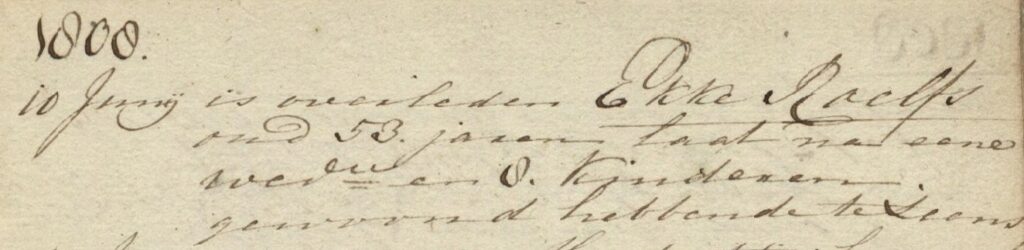 1808.
10 Junij is overleden Ekke Roelfs
oud 53. jaren laat na eene
wedw en 8. kinderen.
gewoond hebbende te Leens